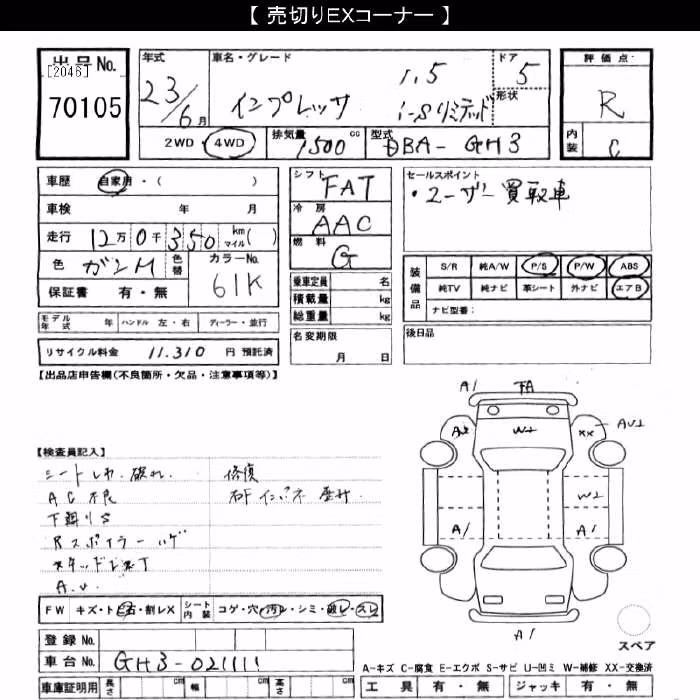 【 売切りEXコーナー 】
出品No.
[2046]
70105
年式
23/6月
車名・グレード
1.5
インプレッサ i-Sリミテッド
ドア
5
形状
評価点
R
内装
C
2WD ・ 4WD
排気量 1500 cc
型式 DBA- GH3
車歴 自家用・( )
車検 年 月
走行 12万 0千 350 km マイル( )
色 ガンM
色替
カラーNo.
61K
保証書 有・無
シフト FAT
冷房 AAC
燃料 G
セールスポイント
・ユーザー買取車
乗車定員 名
積載量 kg
総重量 kg
装備品
S/R 純A/W P/S P/W ABS
純TV 純ナビ 革シート 外ナビ エアB
ナビ型番:
モデル年式 年 ハンドル 左・右 ディーラー・並行
名変期限
月 日
後日品
リサイクル料金 11,310 円 預託済
【出品店申告欄(不良箇所・欠品・注意事項等)】
A1 FA
AX2 W2 XX AU2
W2
A1 A1
A1
【検査員記入】
シートレカ 破れ 修復
AC不良
下廻りS
Rスポイラーハゲ
A.U.
FW キズ・ト石・割レX
シート内装 コゲ・穴・汚レ・シミ・破レ・スレ
登録No.
車台No. GH3-021111
車庫証明用 長さ cm 幅 cm 高さ cm
スペア
A-キズ C-腐食 E-エクボ S-サビ U-凹ミ W-補修 XX-交換済
工具 有・無 ジャッキ 有・無